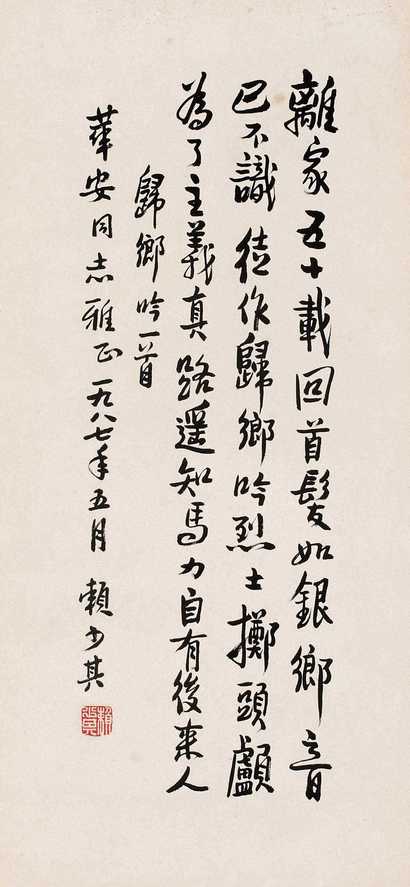 離家五十載回首髮如銀鄉音
已不識徒作歸鄉吟烈士擲頭顱
為了主義真路遥知馬力自有後来人
歸鄉吟一首
華安同志雅正一九八七年五月賴少其